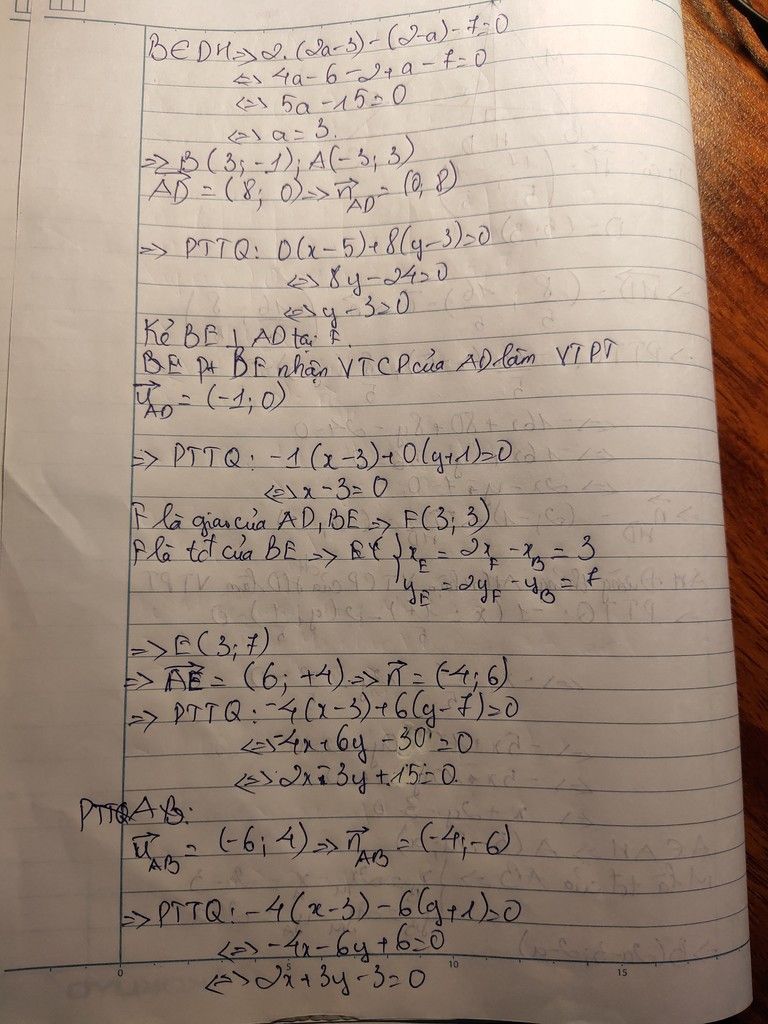 B∈DH => 2.(2a-3)-(2-a)-7=0
<=> 4a-6-2+a-7=0
<=> 5a-15=0
<=> a=3.
=> B(3;-1); A(-3;3)
AD→ = (8; 0) => n→AD = (0; 8)
=> PTTQ: 0(x-5)+8(y-3)=0
<=> 8y-24=0
<=> y-3=0
Kẻ BE ⊥ AD tại F.
BE pt BE nhận VTCP của AD làm VTPT
u→AD = (-1;0)
=> PTTQ: -1(x-3)+0(y+1)=0
<=> x-3=0
F là giao của AD, BE => F(3;3)
F là tđ của BE => E { xE = 2xF - xB = 3
yE = 2yF - yB = 7
=> E(3;7)
=> AE→ = (6; +4) => n→ = (-4;6)
=> PTTQ: -4(x-3)+6(y-7)=0
<=> -4x+6y-30=0
<=> 2x-3y+15=0
PTTQ AB:
u→AB = (-6;4) => n→AB = (-4;-6)
=> PTTQ: -4(x-3)-6(y+1)=0
<=> -4x-6y+6=0
0 5 10 15
<=> 2x+3y-3=0